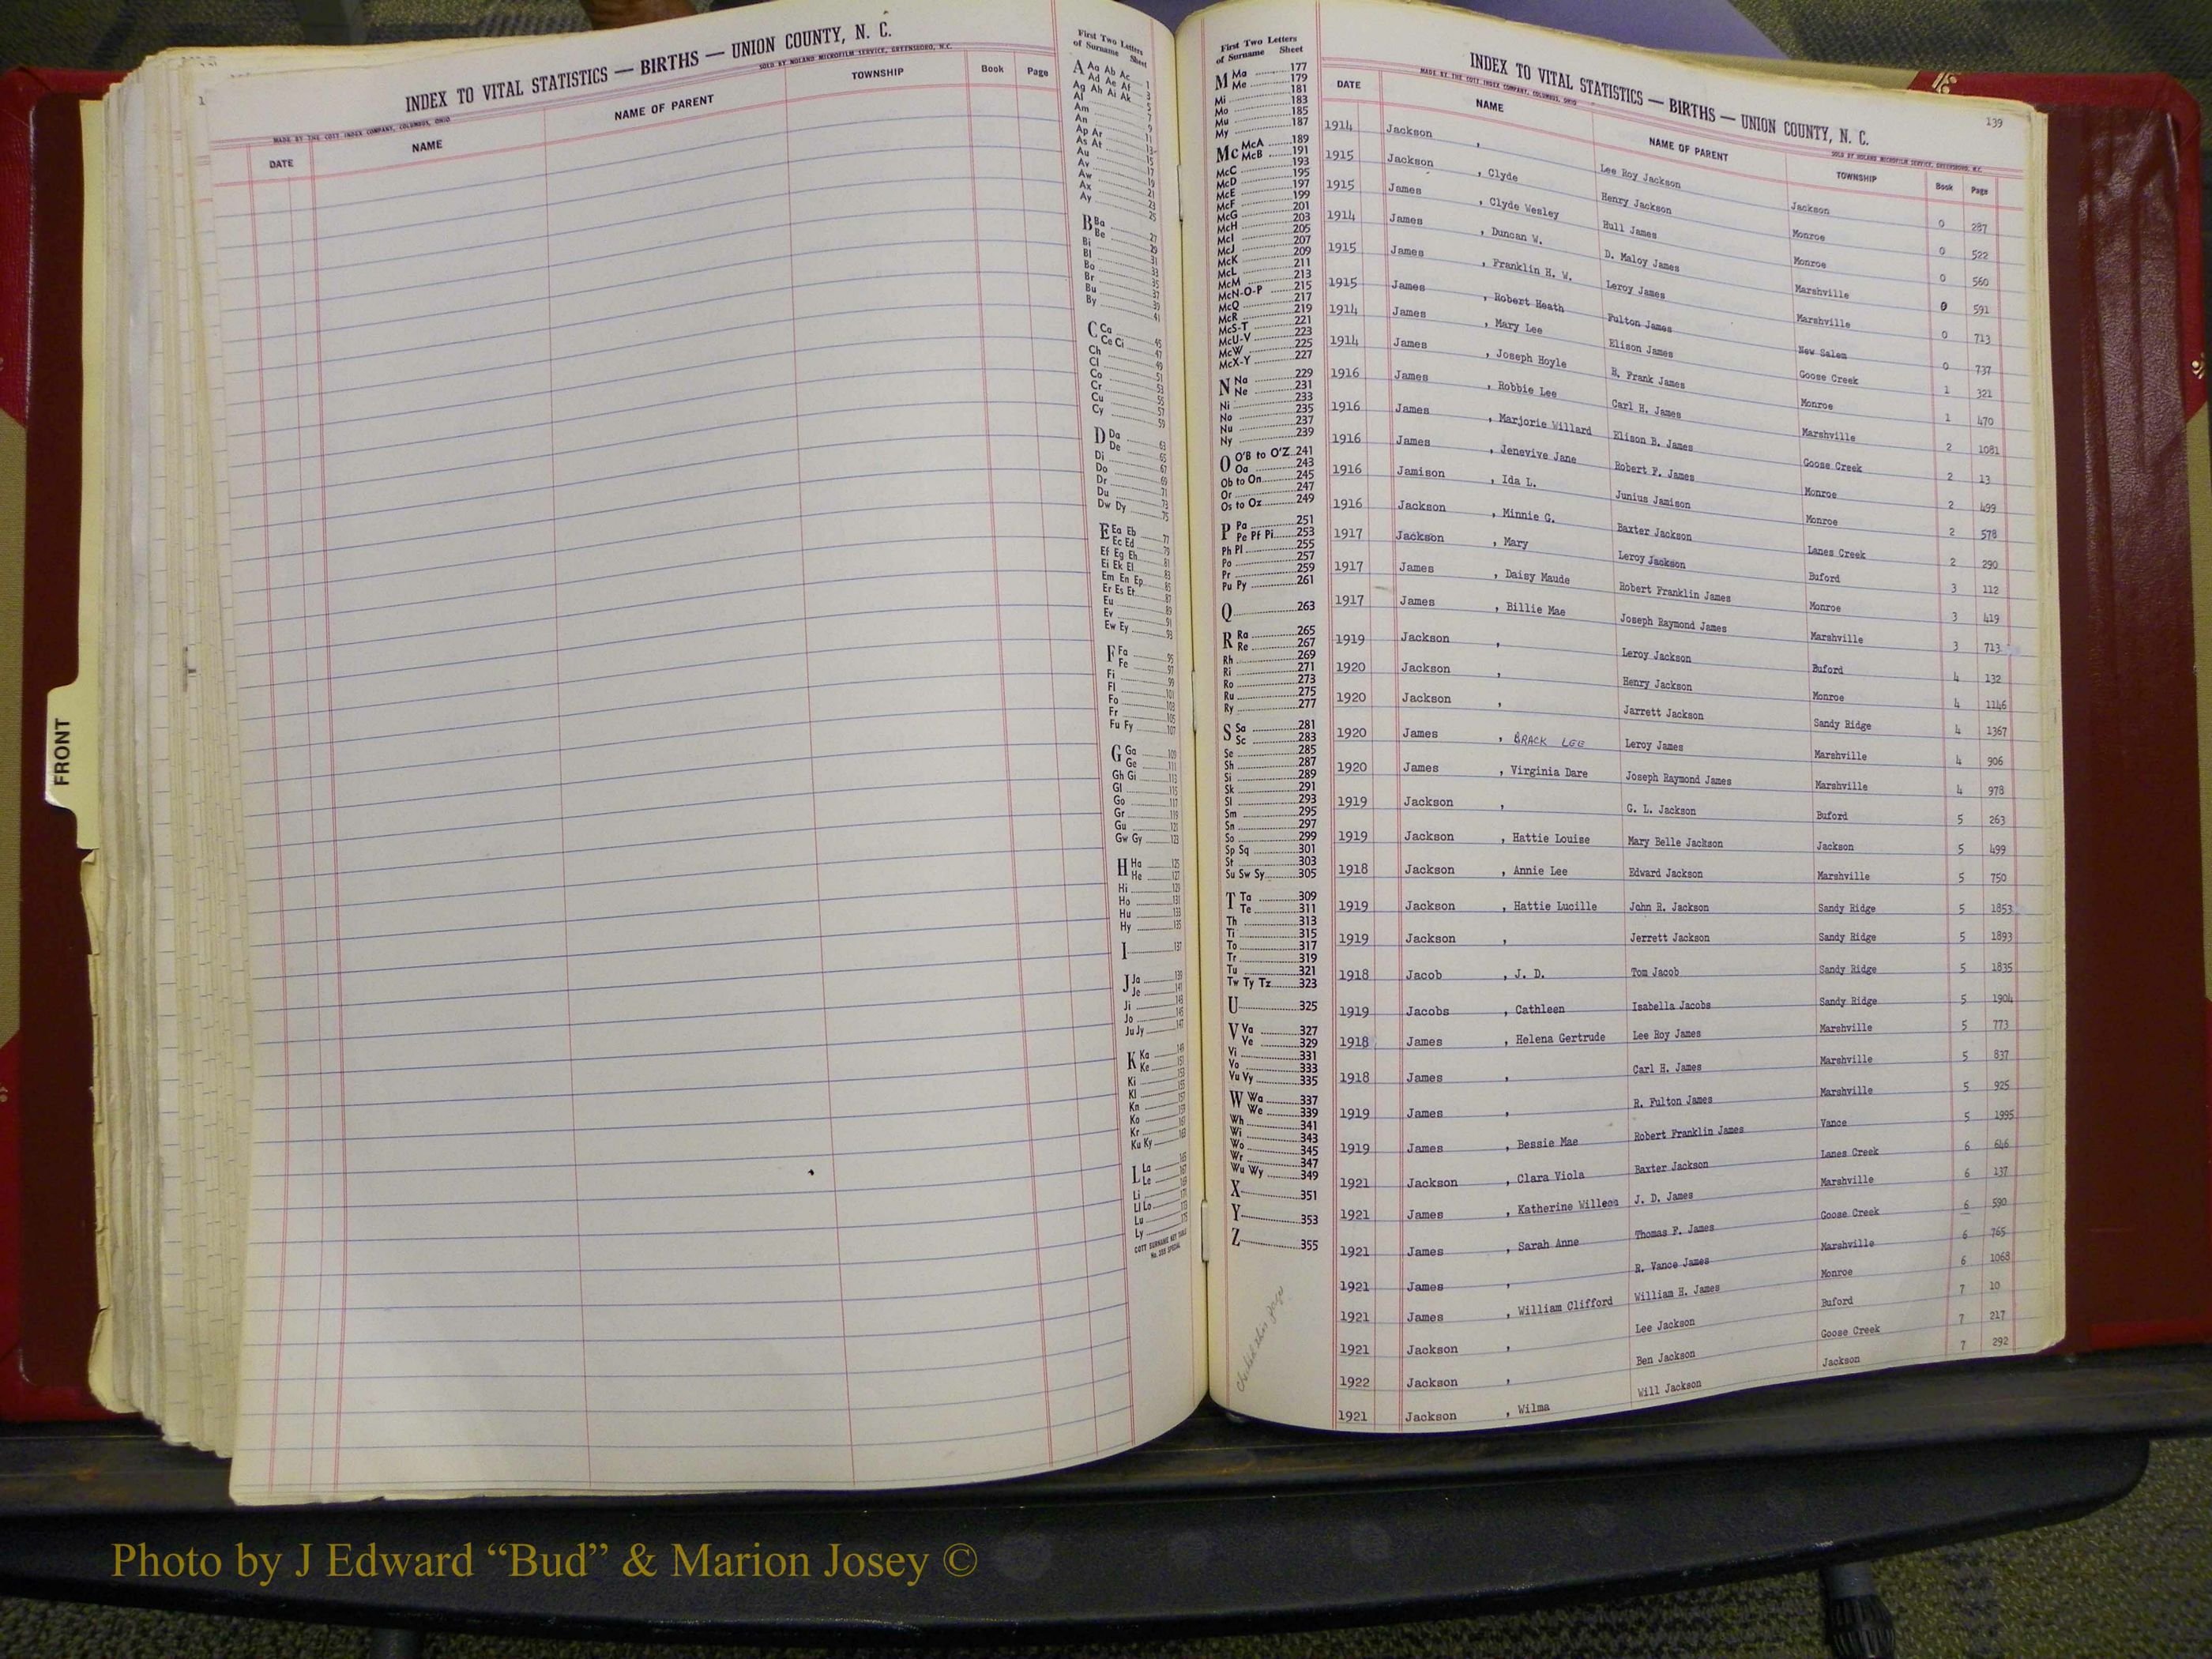 INDEX TO VITAL STATISTICS — BIRTHS — UNION COUNTY, N. C.
MADE BY THE COTT INDEX COMPANY, COLUMBUS, OHIO SOLD BY NOLAND MICROFILM SERVICE, GREENSBORO, N.C.
DATE NAME NAME OF PARENT TOWNSHIP Book Page
First Two Letters
of Surname Sheet
A Aa Ab Ac 1
Ad Ae Af 3
Ag Ah Ai Ak 5
Al 7
Am 9
An 11
Ap Ar 13
As At 15
Au 17
Av 19
Aw 21
Ax 23
Ay 25
B Ba 27
Be 29
Bi 31
Bl 33
Bo 35
Br 37
Bu 39
By 41
C Ca 45
Ce Ci 47
Ch 49
Cl 51
Co 53
Cr 55
Cu 57
Cy 59
D Da 63
De 65
Di 67
Do 69
Dr 71
Du 73
Dw Dy 75
E Ea Eb 77
Ec Ed 79
Ef Eg Eh 81
Ei Ek El 83
Em En Ep 85
Er Es Et 87
Eu 89
Ev 91
Ew Ey 93
F Fa 95
Fe 97
Fi 99
Fl 101
Fo 103
Fr 105
Fu Fy 107
G Ga 109
Ge 111
Gh Gi 113
Gl 115
Go 117
Gr 119
Gu 121
Gw Gy 123
H Ha 125
He 127
Hi 129
Ho 131
Hu 133
Hy 135
I 137
J Ja 139
Je 141
Ji 143
Jo 145
Ju Jy 147
K Ka 149
Ke 151
Ki 153
Kl 155
Kn 157
Ko 159
Kr 161
Ku Ky 163
L La 165
Le 167
Li 169
Ll Lo 171
Lu 173
Ly 175
COTT SURNAME KEY TABLE
FRONT
First Two Letters
of Surname Sheet
M Ma 177
Me 179
Mi 181
Mo 183
Mu 185
My 187
Mc McA 189
McB 191
McC 193
McD 195
McE 197
McF 199
McG 201
McH 203
McI 205
McJ 207
McK 209
McL 211
McM 213
McN-O-P 215
McQ 217
McR 219
McS-T 221
McU-V 223
McW 225
McX-Y 227
N Na 229
Ne 231
Ni 233
No 235
Nu 237
Ny 239
O O'B to O'Z 241
Oa 243
Ob to On 245
Or 247
Os to Oz 249
P Pa 251
Pe Pf Pi 253
Ph Pl 255
Po 257
Pr 259
Pu Py 261
Q 263
R Ra 265
Re 267
Rh 269
Ri 271
Ro 273
Ru 275
Ry 277
S Sa 281
Sc 283
Se 285
Sh 287
Si 289
Sk 291
Sl 293
Sm 295
Sn 297
So 299
Sp Sq 301
St 303
Su Sw Sy 305
T Ta 309
Te 311
Th 313
Ti 315
To 317
Tr 319
Tu 321
Tw Ty Tz 323
U 325
V Va 327
Ve 329
Vi 331
Vo 333
Vu Vy 335
W Wa 337
We 339
Wh 341
Wi 343
Wo 345
Wr 347
Wu Wy 349
X 351
Y 353
Z 355
INDEX TO VITAL STATISTICS — BIRTHS — UNION COUNTY, N. C. 139
MADE BY THE COTT INDEX COMPANY, COLUMBUS, OHIO SOLD BY NOLAND MICROFILM SERVICE, GREENSBORO, N.C.
DATE NAME NAME OF PARENT TOWNSHIP Book Page
1914 Jackson , Lee Roy Jackson Jackson 0 287
1915 Jackson , Clyde Henry Jackson Monroe 0 522
1915 James , Clyde Wesley Hull James Monroe 0 560
1914 James , Duncan W. D. Maloy James Marshville 0 591
1915 James , Franklin H. W. Leroy James Marshville 0 713
1915 James , Robert Heath Fulton James New Salem 0 737
1914 James , Mary Lee Elison James Goose Creek 1 321
1914 James , Joseph Hoyle R. Frank James Monroe 1 470
1916 James , Robbie Lee Carl H. James Marshville 2 1081
1916 James , Marjorie Willard Elison B. James Goose Creek 2 13
1916 James , Jenevive Jane Robert F. James Monroe 2 499
1916 Jamison , Ida L. Junius Jamison Monroe 2 578
1916 Jackson , Minnie G. Baxter Jackson Lanes Creek 2 290
1917 Jackson , Mary Leroy Jackson Buford 3 112
1917 James , Daisy Maude Robert Franklin James Monroe 3 419
1917 James , Billie Mae Joseph Raymond James Marshville 3 713
1919 Jackson , Leroy Jackson Buford 4 132
1920 Jackson , Henry Jackson Monroe 4 1146
1920 Jackson , Jarrett Jackson Sandy Ridge 4 1367
1920 James , BRACK LEE Leroy James Marshville 4 906
1920 James , Virginia Dare Joseph Raymond James Marshville 4 978
1919 Jackson , G. L. Jackson Buford 5 263
1919 Jackson , Hattie Louise Mary Belle Jackson Jackson 5 499
1918 Jackson , Annie Lee Edward Jackson Marshville 5 750
1919 Jackson , Hattie Lucille John R. Jackson Sandy Ridge 5 1853
1919 Jackson , Jerrett Jackson Sandy Ridge 5 1893
1918 Jacob , J. D. Tom Jacob Sandy Ridge 5 1835
1919 Jacobs , Cathleen Isabella Jacobs Sandy Ridge 5 1904
1918 James , Helena Gertrude Lee Roy James Marshville 5 773
1918 James , Carl H. James Marshville 5 837
1919 James , R. Fulton James Marshville 5 925
1919 James , Bessie Mae Robert Franklin James Vance 5 1995
1921 Jackson , Clara Viola Baxter Jackson Lanes Creek 6 646
1921 James , Katherine Willeen J. D. James Marshville 6 137
1921 James , Sarah Anne Thomas F. James Goose Creek 6 590
1921 James , R. Vance James Marshville 6 765
1921 James , William Clifford William H. James Monroe 6 1068
1921 Jackson , Lee Jackson Buford 7 10
1922 Jackson , Ben Jackson Goose Creek 7 217
1921 Jackson , Wilma Will Jackson Jackson 7 292
Checked this page
Photo by J Edward “Bud” & Marion Josey ©